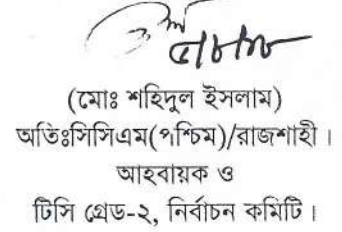 (মোঃ শহিদুল ইসলাম)
অতিঃসিসিএম(পশ্চিম)/রাজশাহী।
আহবায়ক ও
টিসি গ্রেড-২, নির্বাচন কমিটি।